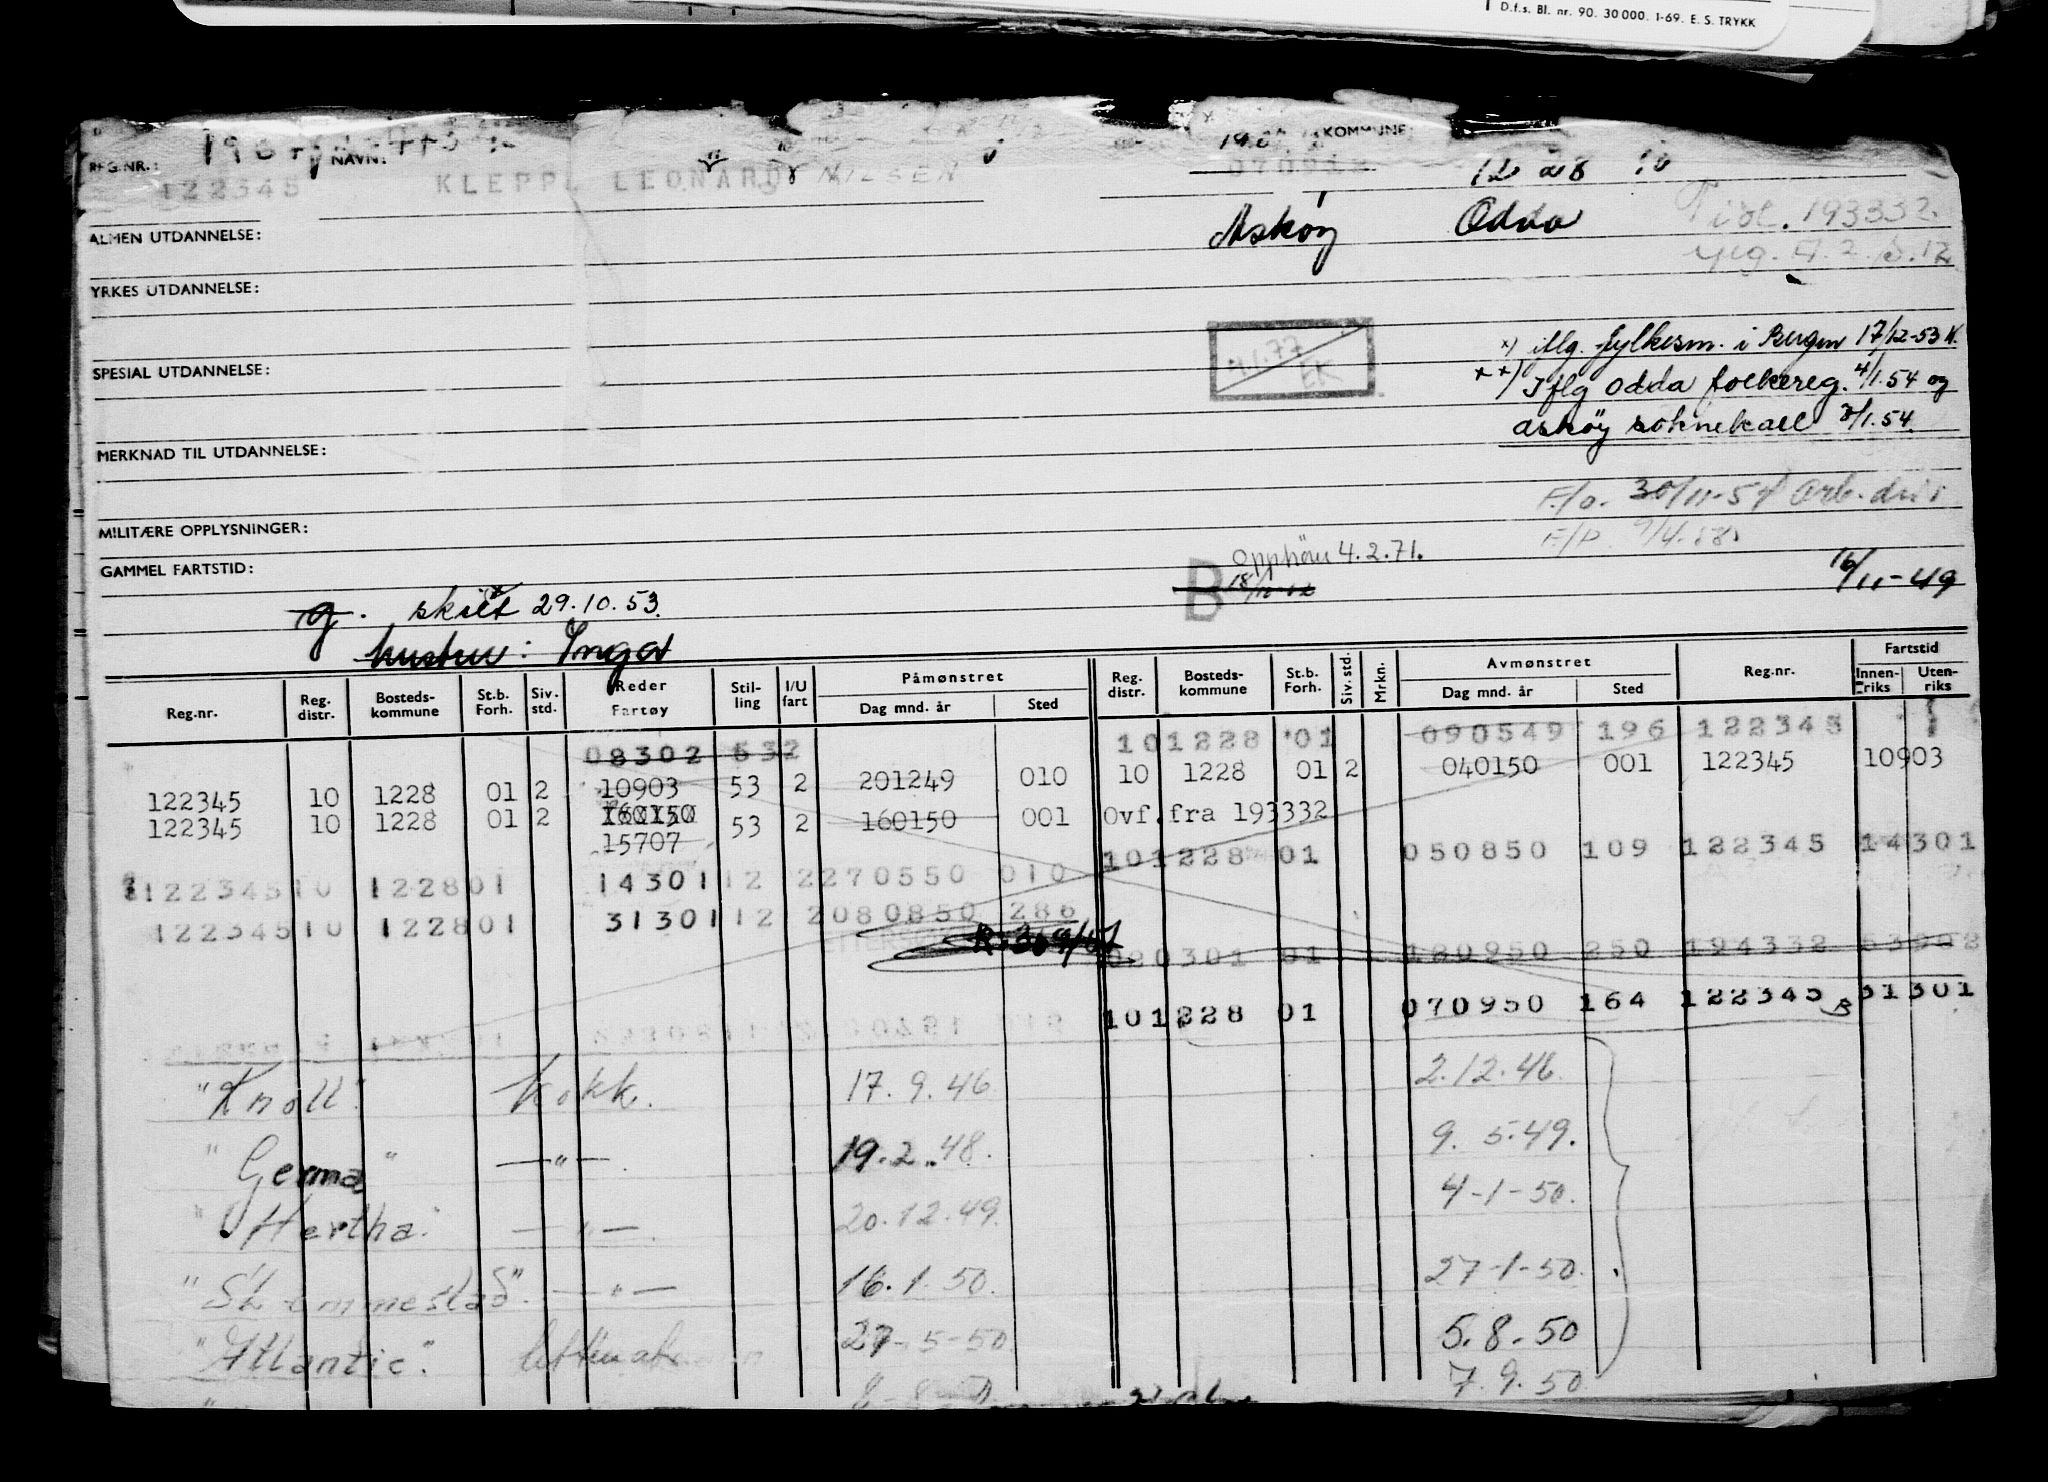 D.f.s. Bl. nr. 90. 30 000. 1-69. E. S. TRYKK
REG.NR.: NAVN: KOMMUNE:
122345 KLEPP, LEONARD NILSEN 070912 12 28 10
ALMEN UTDANNELSE: Askøy Odda Tidl. 193332.
YRKES UTDANNELSE:
x) iflg. fylkesm. i Bergen 17/12-53 K.
SPESIAL UTDANNELSE: 4.1.77 EK
xx) Iflg Odda folkereg. 4/1.54 og
askøy
MERKNAD TIL UTDANNELSE:
F/o. 30/11-54
MILITÆRE OPPLYSNINGER:
GAMMEL FARTSTID: B Opphør 4.2.71.
16/11-49
g. skilt 29.10.53.
hustru: Inga
Reg.nr. Reg. distr. Bosteds-kommune St.b. Forh. Siv. std. Reder Fartøy Stil-ling I/U fart Påmønstret Dag mnd. år Sted Reg. distr. Bosteds-kommune St.b. Forh. Siv. std. Mrkn. Avmønstret Dag mnd. år Sted Reg.nr. Fartstid Innen-riks Uten-riks
08302 532 10 1228 01 090549 196 122345
122345 10 1228 01 2 10903 53 2 201249 010 10 1228 01 2 040150 001 122345 10903
122345 10 1228 01 2 15707 53 2 160150 001 Ovf.fra 193332
101228 01 050850 109 122345 14301
122345 10 1228 01 14301 12 2 270550 010
122345 10 1228 01 31301 12 2 080850 286
020301 01 180950 250 194332
101228 01 070950 164 122345 31301
"Knoll". Kokk. 17. 9. 46 2.12.46.
"Germa" —"—. 19.2.48. 9. 5.49.
"Hertha." —"—. 20.12.49. 4-1-50.
—"— 16.1.50. 27-1-50.
"Atlantic". 27-5-50 5.8.50
7.9.50